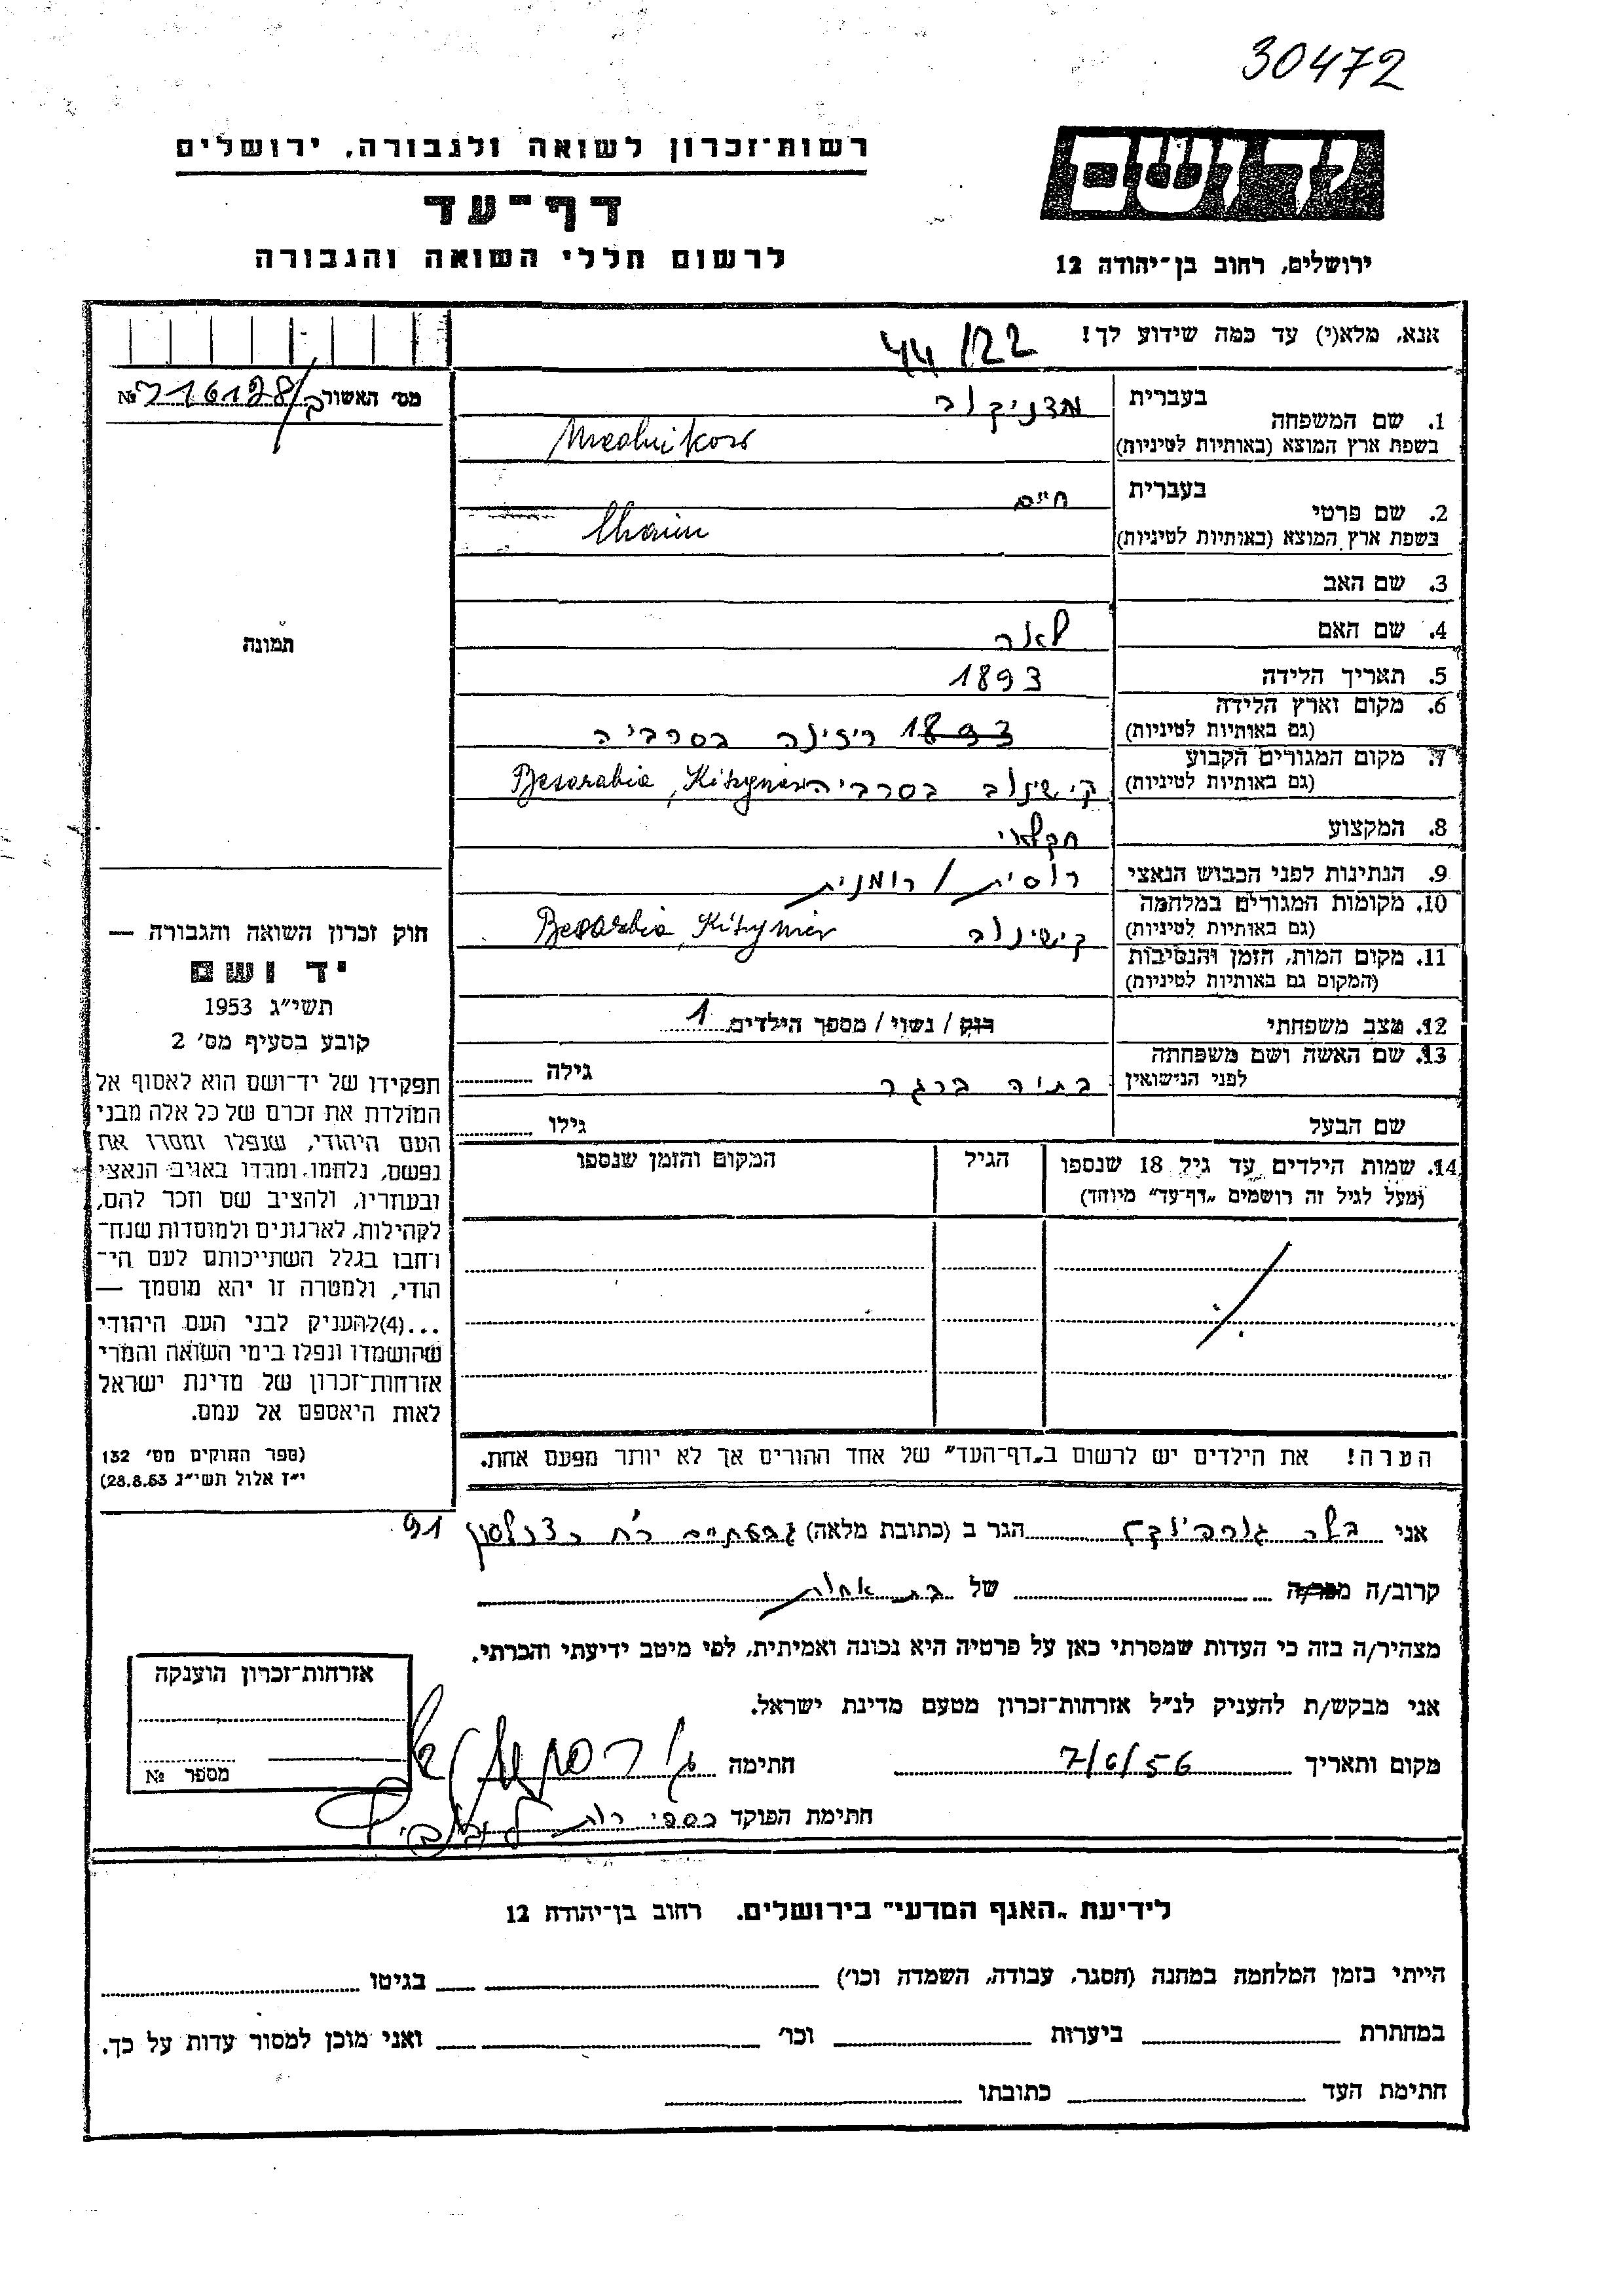 30472
רשות־זכרון לשואה ולגבורה, ירושלים
יד ושם
דף־עד
לרשום חללי השואה והגבורה
ירושלים, רחוב בן־יהודה 12
אנא, מלא(י) עד כמה שידוע לך! 44/122
מס׳ האשור
1. שם המשפחה
בעברית
מדניקוב
בשפת ארץ המוצא (באותיות לטיניות)
Miednikow
2. שם פרטי
בעברית חיים
בשפת ארץ המוצא (באותיות לטיניות)
Chaim
3. שם האב
4. שם האם לאה
תמונה
5. תאריך הלידה 1893
6. מקום וארץ הלידה
(גם באותיות לטיניות) 1893 ריזינה בסרביה
7. מקום המגורים הקבוע
(גם באותיות לטיניות) קישינוב בסרביה Besarabia, Kiszyniew
8. המקצוע חקלאי
9. הנתינות לפני הכבוש הנאצי רוסית / רומנית
10. מקומות המגורים במלחמה
(גם באותיות לטיניות) קישינוב Besarabia, Kiszyniew
11. מקום המות, הזמן והנסיבות
(המקום גם באותיות לטיניות)
12. מצב משפחתי רוק / נשוי / מספר הילדים 1
13. שם האשה ושם משפחתה
לפני הנישואין בתיה ברגר גילה
שם הבעל גילו
14. שמות הילדים עד גיל 18 שנספו
(מעל לגיל זה רושמים „דף־עד״ מיוחד)
הגיל
המקום והזמן שנספו
חוק זכרון השואה והגבורה —
יד ושם
תשי״ג 1953
קובע בסעיף מס׳ 2
תפקידו של יד־ושם הוא לאסוף אל
המולדת את זכרם של כל אלה מבני
העם היהודי, שנפלו ומסרו את
נפשם, נלחמו ומרדו באויב הנאצי
ובעוזריו, ולהציב שם וזכר להם,
לקהילות, לארגונים ולמוסדות שנח־
רחבו בגלל השתייכותם לעם הי־
הודי, ולמטרה זו יהא מוסמך —
...(4)להעניק לבני העם היהודי
שהושמדו ונפלו בימי השואה והמרי
אזרחות־זכרון של מדינת ישראל
לאות היאספם אל עמם.
(ספר החוקים מס׳ 132
י״ז אלול תשי״ג 28.8.53)
הערה! את הילדים יש לרשום ב„דף־העד״ של אחד ההורים אך לא יותר מפעם אחת.
אני בלה הגר ב (כתובת מלאה) גבעתיים רח׳ כצנלסון 91
קרוב/ה מכר/ה של בת אחות
מצהיר/ה בזה כי העדות שמסרתי כאן על פרטיה היא נכונה ואמיתית, לפי מיטב ידיעתי והכרתי.
אני מבקש/ת להעניק לנ״ל אזרחות־זכרון מטעם מדינת ישראל.
מקום ותאריך 7/6/56 חתימה
חתימת הפוקד כספי רות
אזרחות־זכרון הוענקה
מספר №
לידיעת „האגף המדעי״ בירושלים. רחוב בן־יהודה 12
הייתי בזמן המלחמה במחנה (הסגר, עבודה, השמדה וכו׳) בגיטו
במחתרת ביערות וכו׳ ואני מוכן למסור עדות על כך.
חתימת העד כתובתו